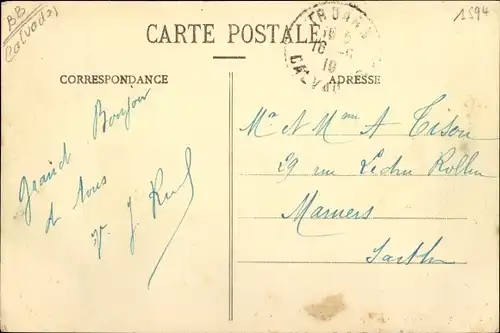 BB
Calvados
CARTE POSTALE
TROARN
CALVADOS
1594
CORRESPONDANCE
ADRESSE
Grand Bonjour
à tous
J.
Mr & Mme A Tison
29 rue Ledru Rollin
Mamers
Sarthe